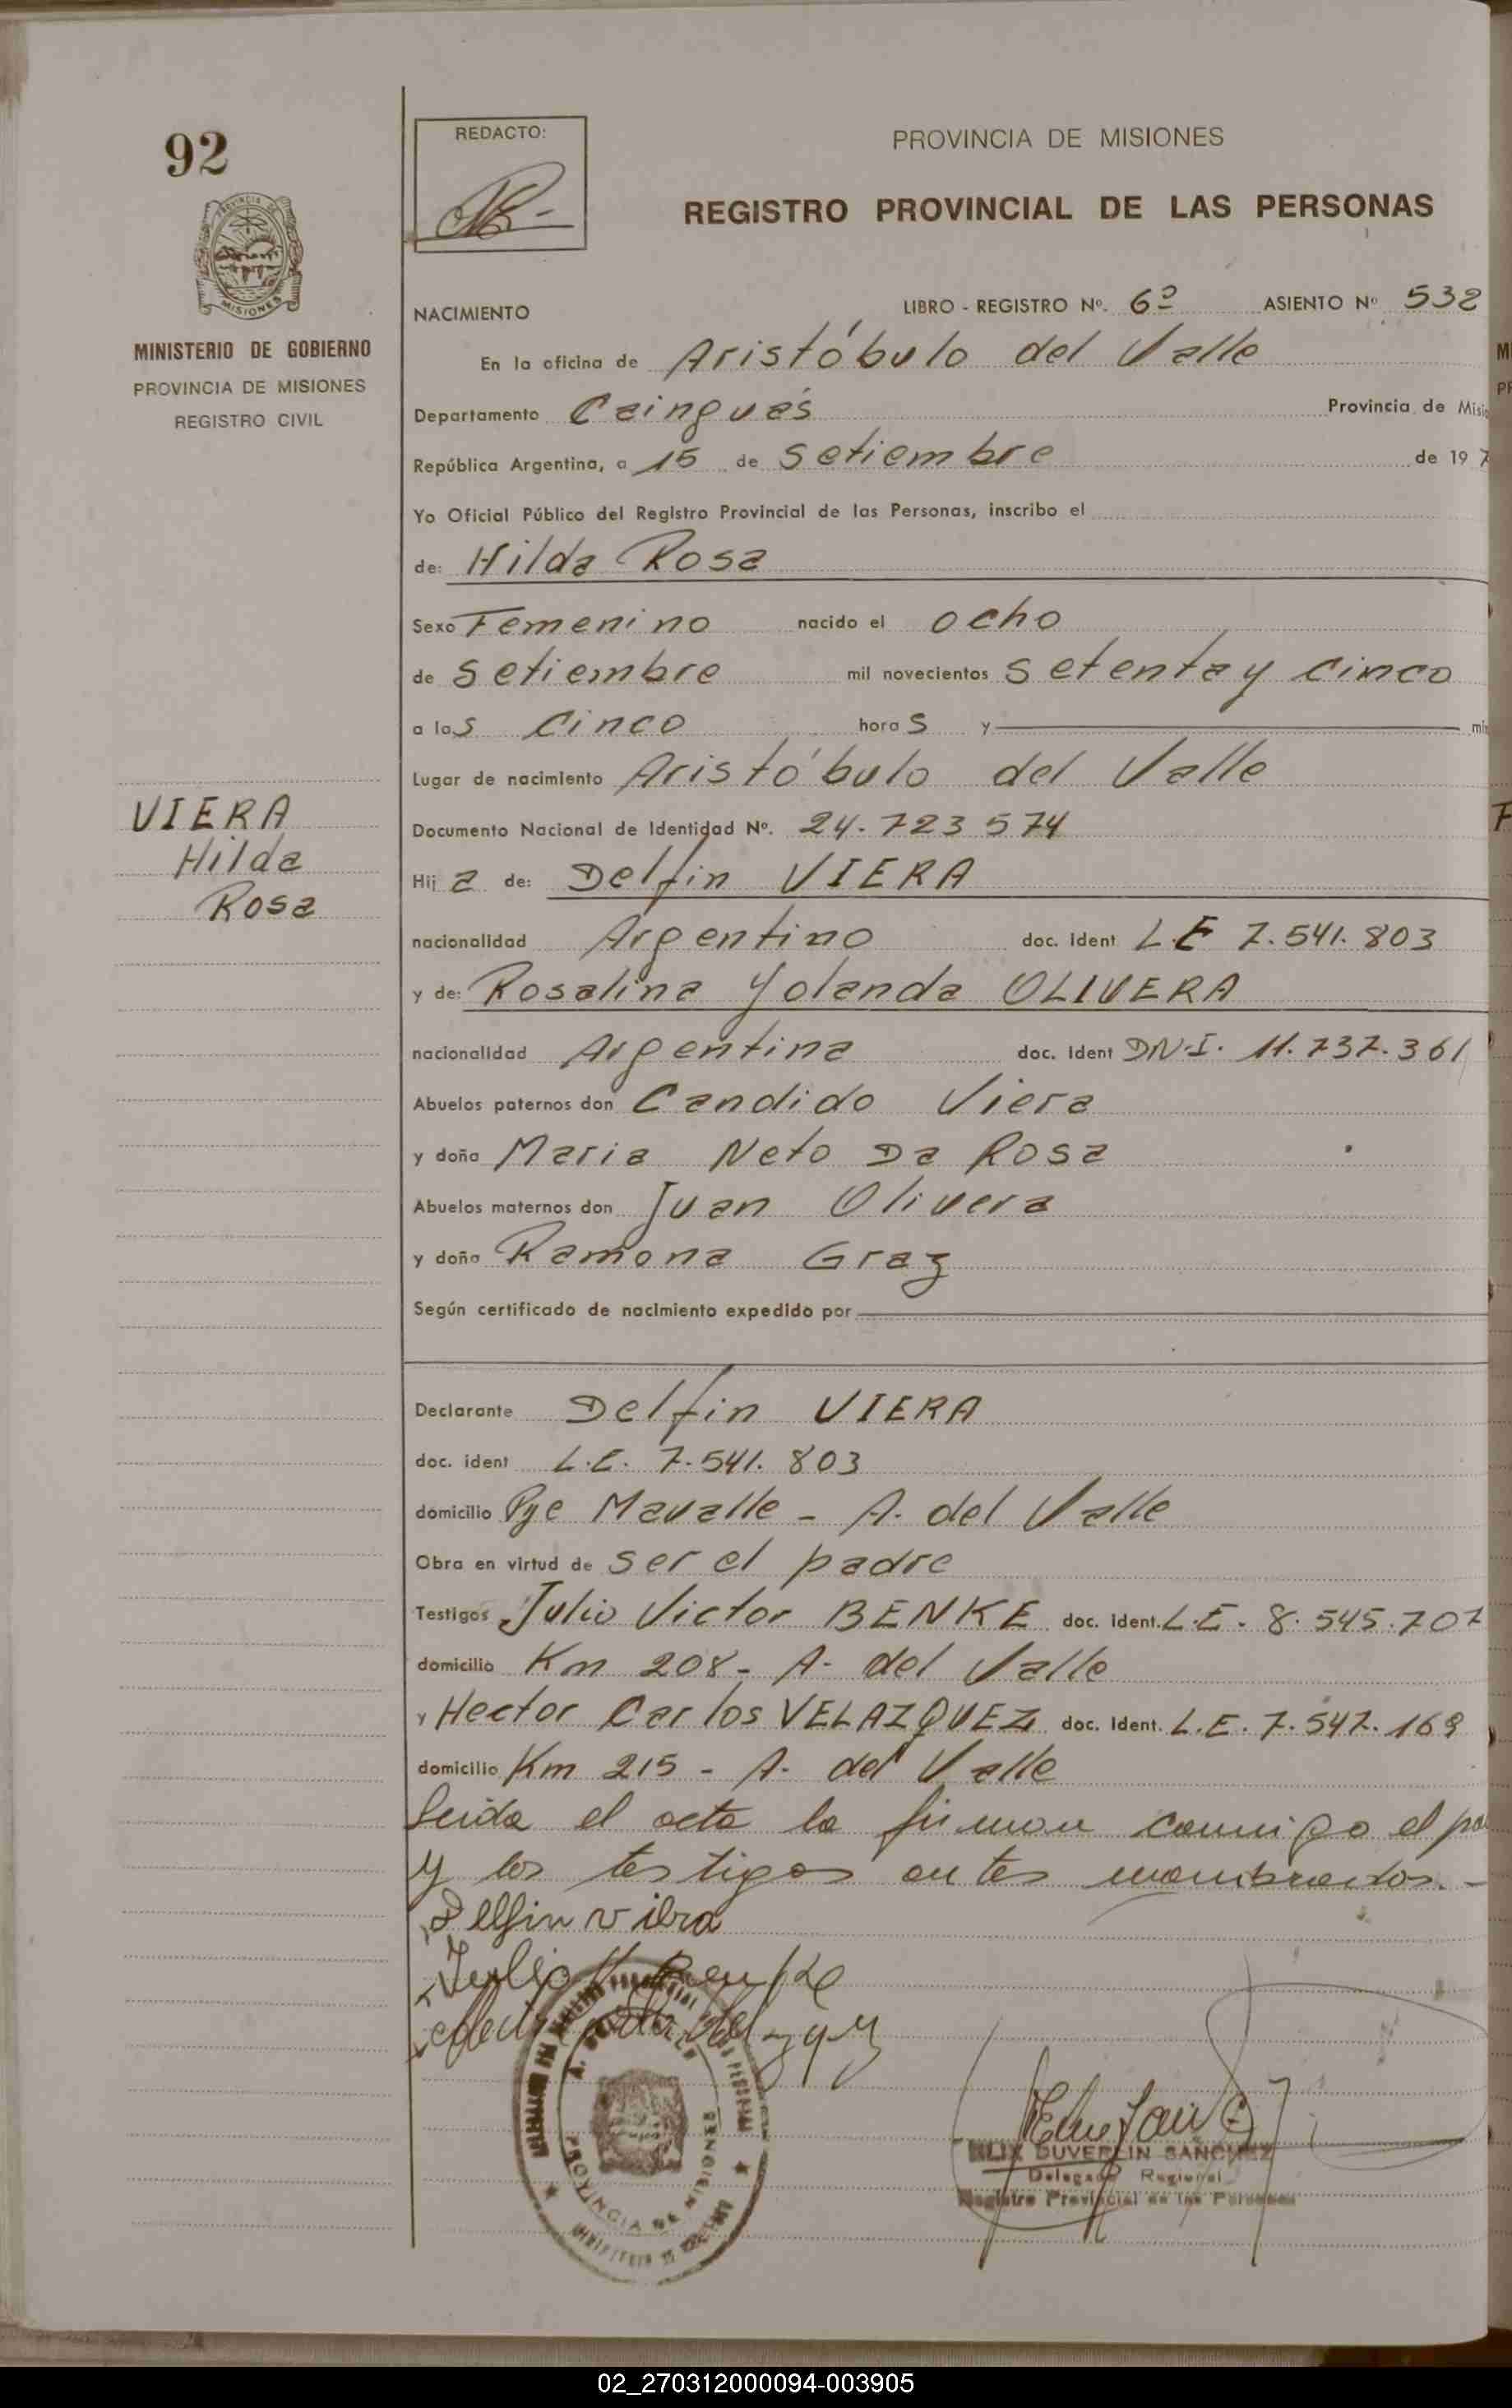 92
REDACTO:
PROVINCIA DE MISIONES
REGISTRO PROVINCIAL DE LAS PERSONAS
PROVINCIA DE
MISIONES
MINISTERIO DE GOBIERNO
PROVINCIA DE MISIONES
REGISTRO CIVIL
NACIMIENTO LIBRO - REGISTRO Nº. 6º ASIENTO Nº 532
En la oficina de Aristóbulo del Valle
Departamento Caingués Provincia de Misio
República Argentina, a 15 de Setiembre de 19 7
Yo Oficial Público del Registro Provincial de las Personas, inscribo el
de: Hilda Rosa
Sexo Femenino nacido el ocho
de Setiembre mil novecientos setenta y cinco
a las cinco horas y
Lugar de nacimiento Aristóbulo del Valle
VIERA
Hilda
Rosa
Documento Nacional de Identidad Nº. 24.723574
Hija de: Delfin VIERA
nacionalidad Argentino doc. ident L.E 7.541.803
y de: Rosalina Yolanda OLIVERA
nacionalidad Argentina doc. ident DN.I. 11.737.361
Abuelos paternos don Candido Viera
y doña Maria Neto Da Rosa
Abuelos maternos don Juan Olivera
y doña Ramona Graz
Según certificado de nacimiento expedido por
Declarante Delfin VIERA
doc. ident L.E. 7.541.803
domicilio Pje Mavalle - A. del Valle
Obra en virtud de ser el padre
Testigos Julio Victor BENKE doc. ident. L.E. 8.545.707
domicilio Km 208 - A. del Valle
y Hector Carlos VELAZQUEZ doc. Ident. L.E. 7.547.169
domicilio Km 215 - A. del Valle
Leida el acta la firman conmigo el pa
y los testigos antes nombrados. -
Delfin viera
Julio V Benke
PROVINCIA DE MISIONES
Delegado Regional
Registro Provincial de las Personas
02_270312000094-003905